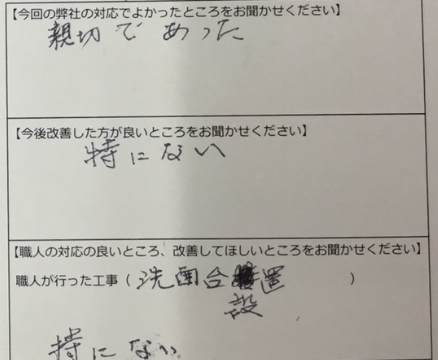 【今回の弊社の対応でよかったところをお聞かせください】
親切であった
【今後改善した方が良いところをお聞かせください】
特にない
【職人の対応の良いところ、改善してほしいところをお聞かせください】
職人が行った工事（洗面台設置）
特にない